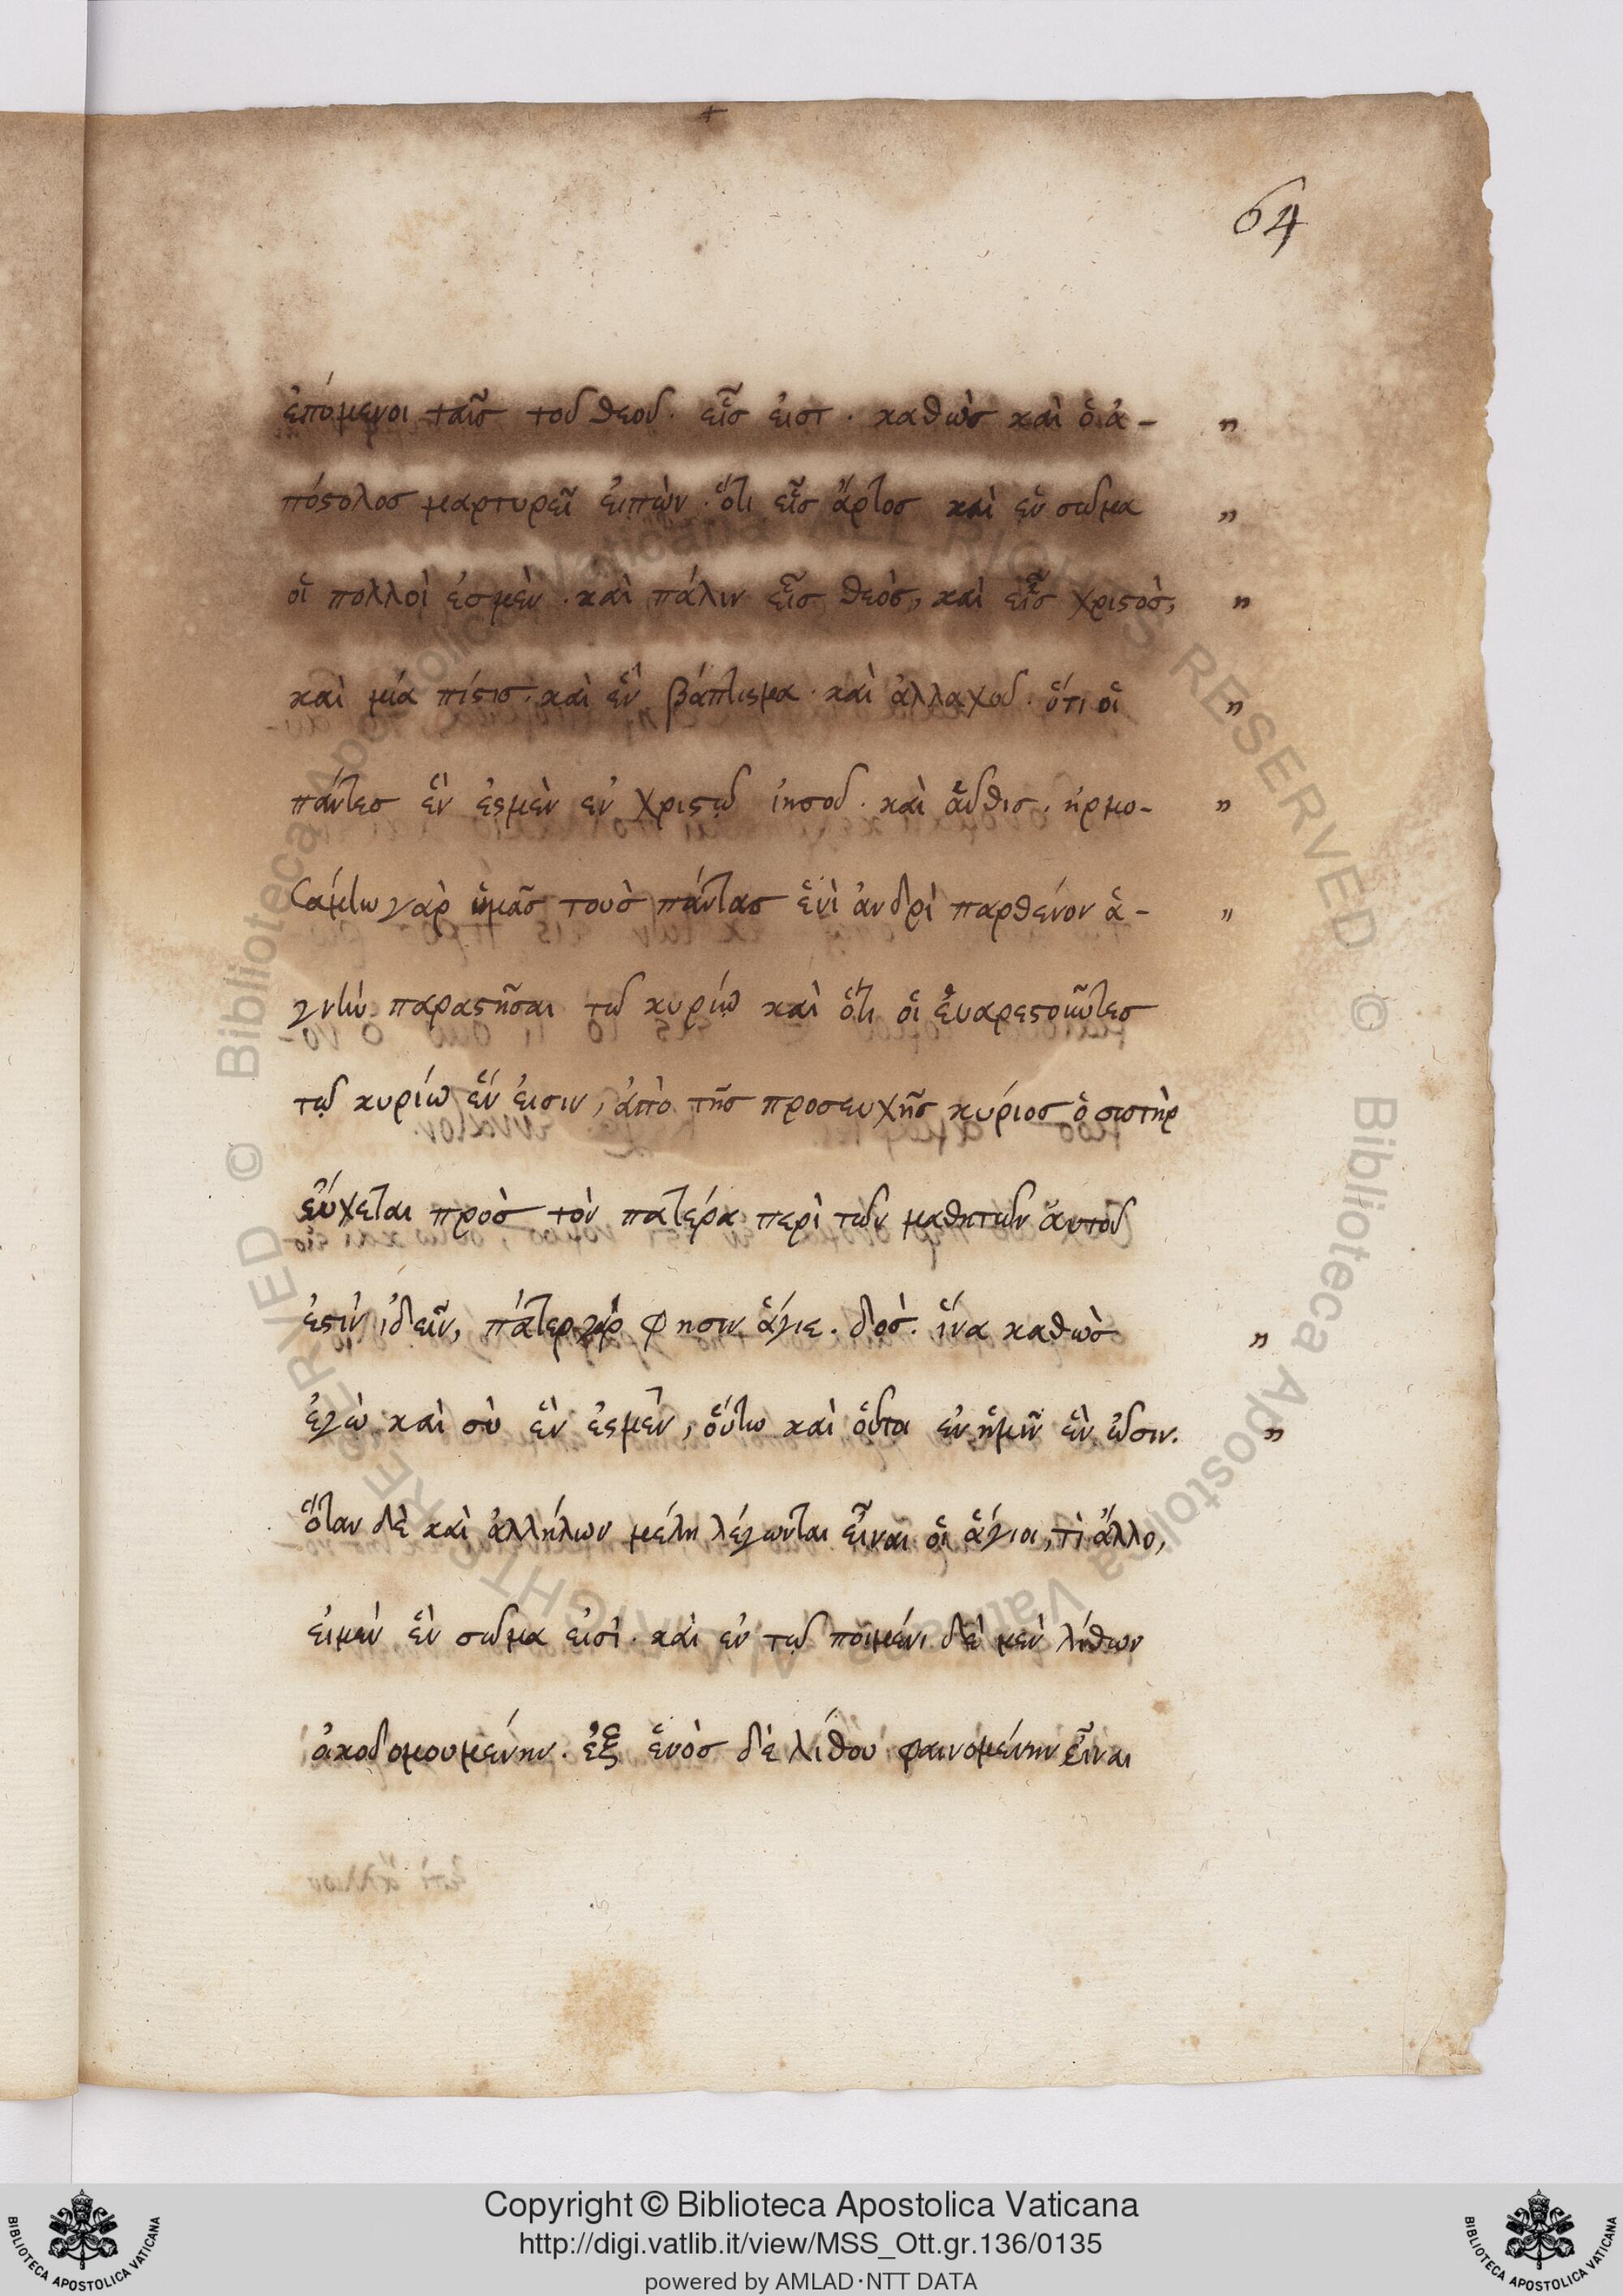 64
ἑπόμενοι ταῖσ τοῦ θεοῦ. εἷσ ἐιστ. καθὼσ καὶ ὁ ἀ- "
πόστολοσ μαρτυρεῖ ἐιπὼν. ὅτι εἷσ ἄρτοσ καὶ ἓν σῶμα "
οἱ πολλοὶ ἐσμὲν. καὶ πάλιν εἷσ θεὸσ, καὶ εἷσ χριστὸσ, "
καὶ μία πίστισ. καὶ ἓν βάπτισμα. καὶ ἀλλαχοῦ. ὅτι οἱ "
πάντεσ ἓν ἐσμὲν ἐν χριστῷ ἰησοῦ. καὶ ἆυθισ. ἡρμο- "
σάμην γὰρ ὑμᾶσ τοὺσ πάντασ ἑνὶ ἀνδρὶ παρθένον ἁ- "
γνὴν παραστῆσαι τῶ κυρίῳ καὶ ὅτι οἱ ἐυαρεστοῦντεσ
τῷ κυρίω ἕν ἐισιν, ἀπὸ τῆσ προσευχῆσ κύριοσ ὁ σωτὴρ
ἔυχεται πρὸσ τὸν πατέρα περὶ τῶν μαθητῶν ἁυτοῦ
ἐστὶν ἰδεῖν, πάτερ γὰρ φησιν ἅγιε. δὸσ. ἵνα καθὼσ "
ἐγὼ καὶ σὺ ἓν ἐσμὲν, ὅυτω καὶ ὁῦτοι ἐν ἡμῖν ἓν ὦσιν. "
ὅταν δὲ καὶ ἀλλήλων μέλη λέγωνται εἶναι οἱ ἅγιοι, τὶ ἄλλο,
ἐιμὴν ἓν σῶμα εἰσὶ. καὶ ἐν τῷ ποιμένι δὲ μὲν λίθων
ὀικοδομουμένην. ἐξ ἑνὸσ δὲ λίθου φαινομένην εἶναι
Copyright © Biblioteca Apostolica Vaticana
http://digi.vatlib.it/view/MSS_Ott.gr.136/0135
powered by AMLAD·NTT DATA
BIBLIOTECA APOSTOLICA VATICANA
BIBLIOTECA APOSTOLICA VATICANA